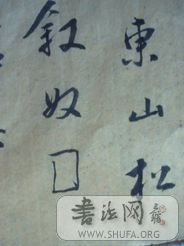 東山松
叙奴□
書法网
WWW.SHUFA.ORG